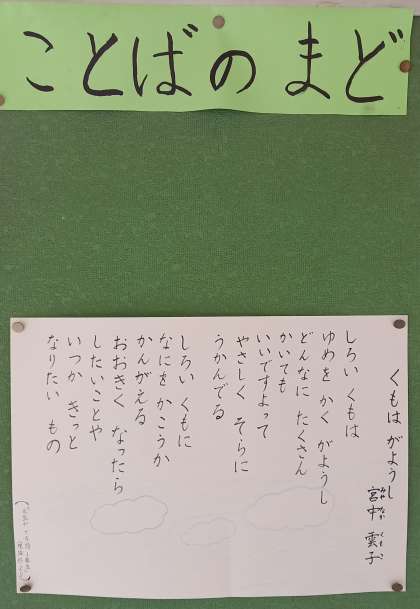 ことばの まど
くもは がようし
宮中 雲子
しろい くもは
ゆめを かく がようし
どんなに たくさん
かいても
いいですよって
やさしく そらに
うかんでる
しろい くもに
なにを かこうか
かんがえる
おおきく なったら
したいことや
いつか きっと
なりたい もの